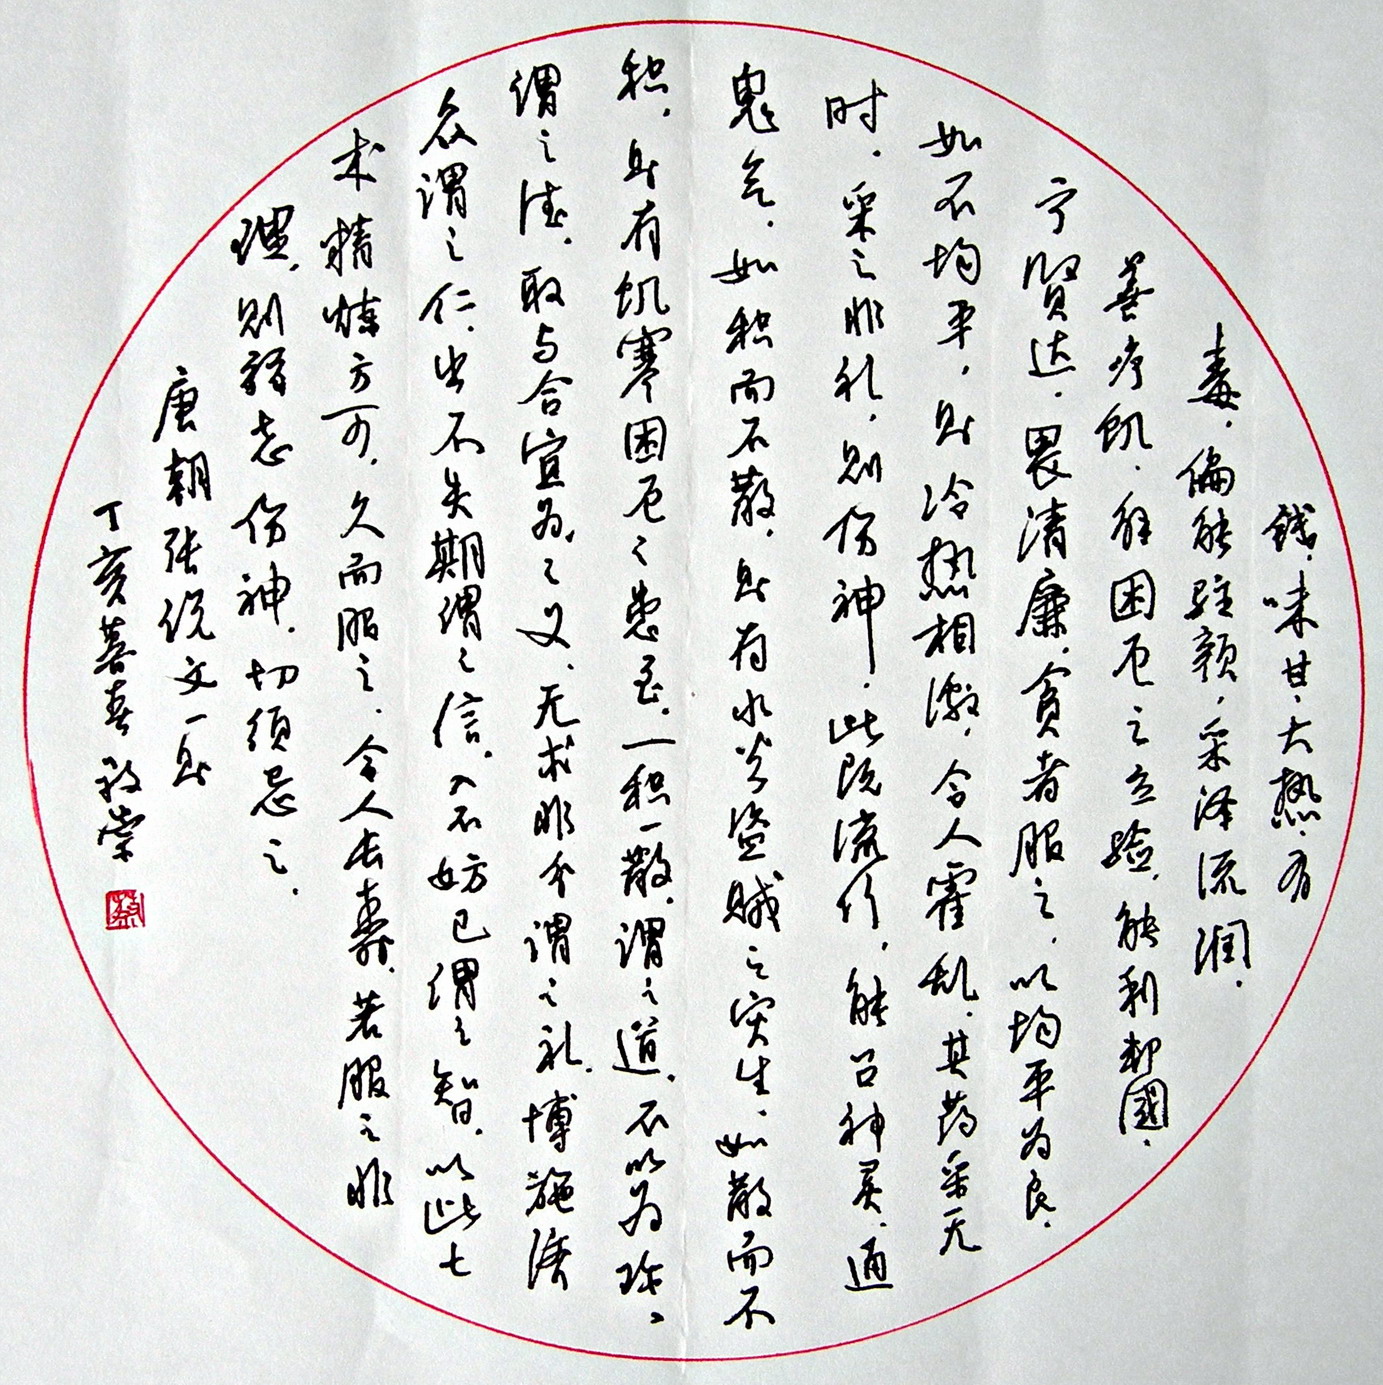 钱，味甘，大热，有
毒，偏能驻颜，采泽流润，
善疗饥，解困厄之立验，能利邦國，
宁賢达，畏清廉，贪者服之，以均平为良，
如不均平，则冷热相激，令人霍乱，其药采无
时，采之非礼，则伤神，此既流行，能召神灵，通
鬼气，如积而不散，则有水火盗贼之灾生，如散而不
积，则有饥寒困厄之患至，一积一散，谓之道，不以为珍，
谓之德，取与合宜为之义，无求非分谓之礼，博施济
众谓之仁，出不失期谓之信，入不妨己谓之智，以此七
术精炼方可，久而服之，令人长寿，若服之非
理，则弱志伤神，切须忌之，
唐朝张说文一则
丁亥暮春
蔡